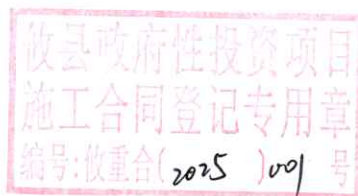 攸县政府性投资项目
施工合同登记专用章
编号:攸重合(2025)001号